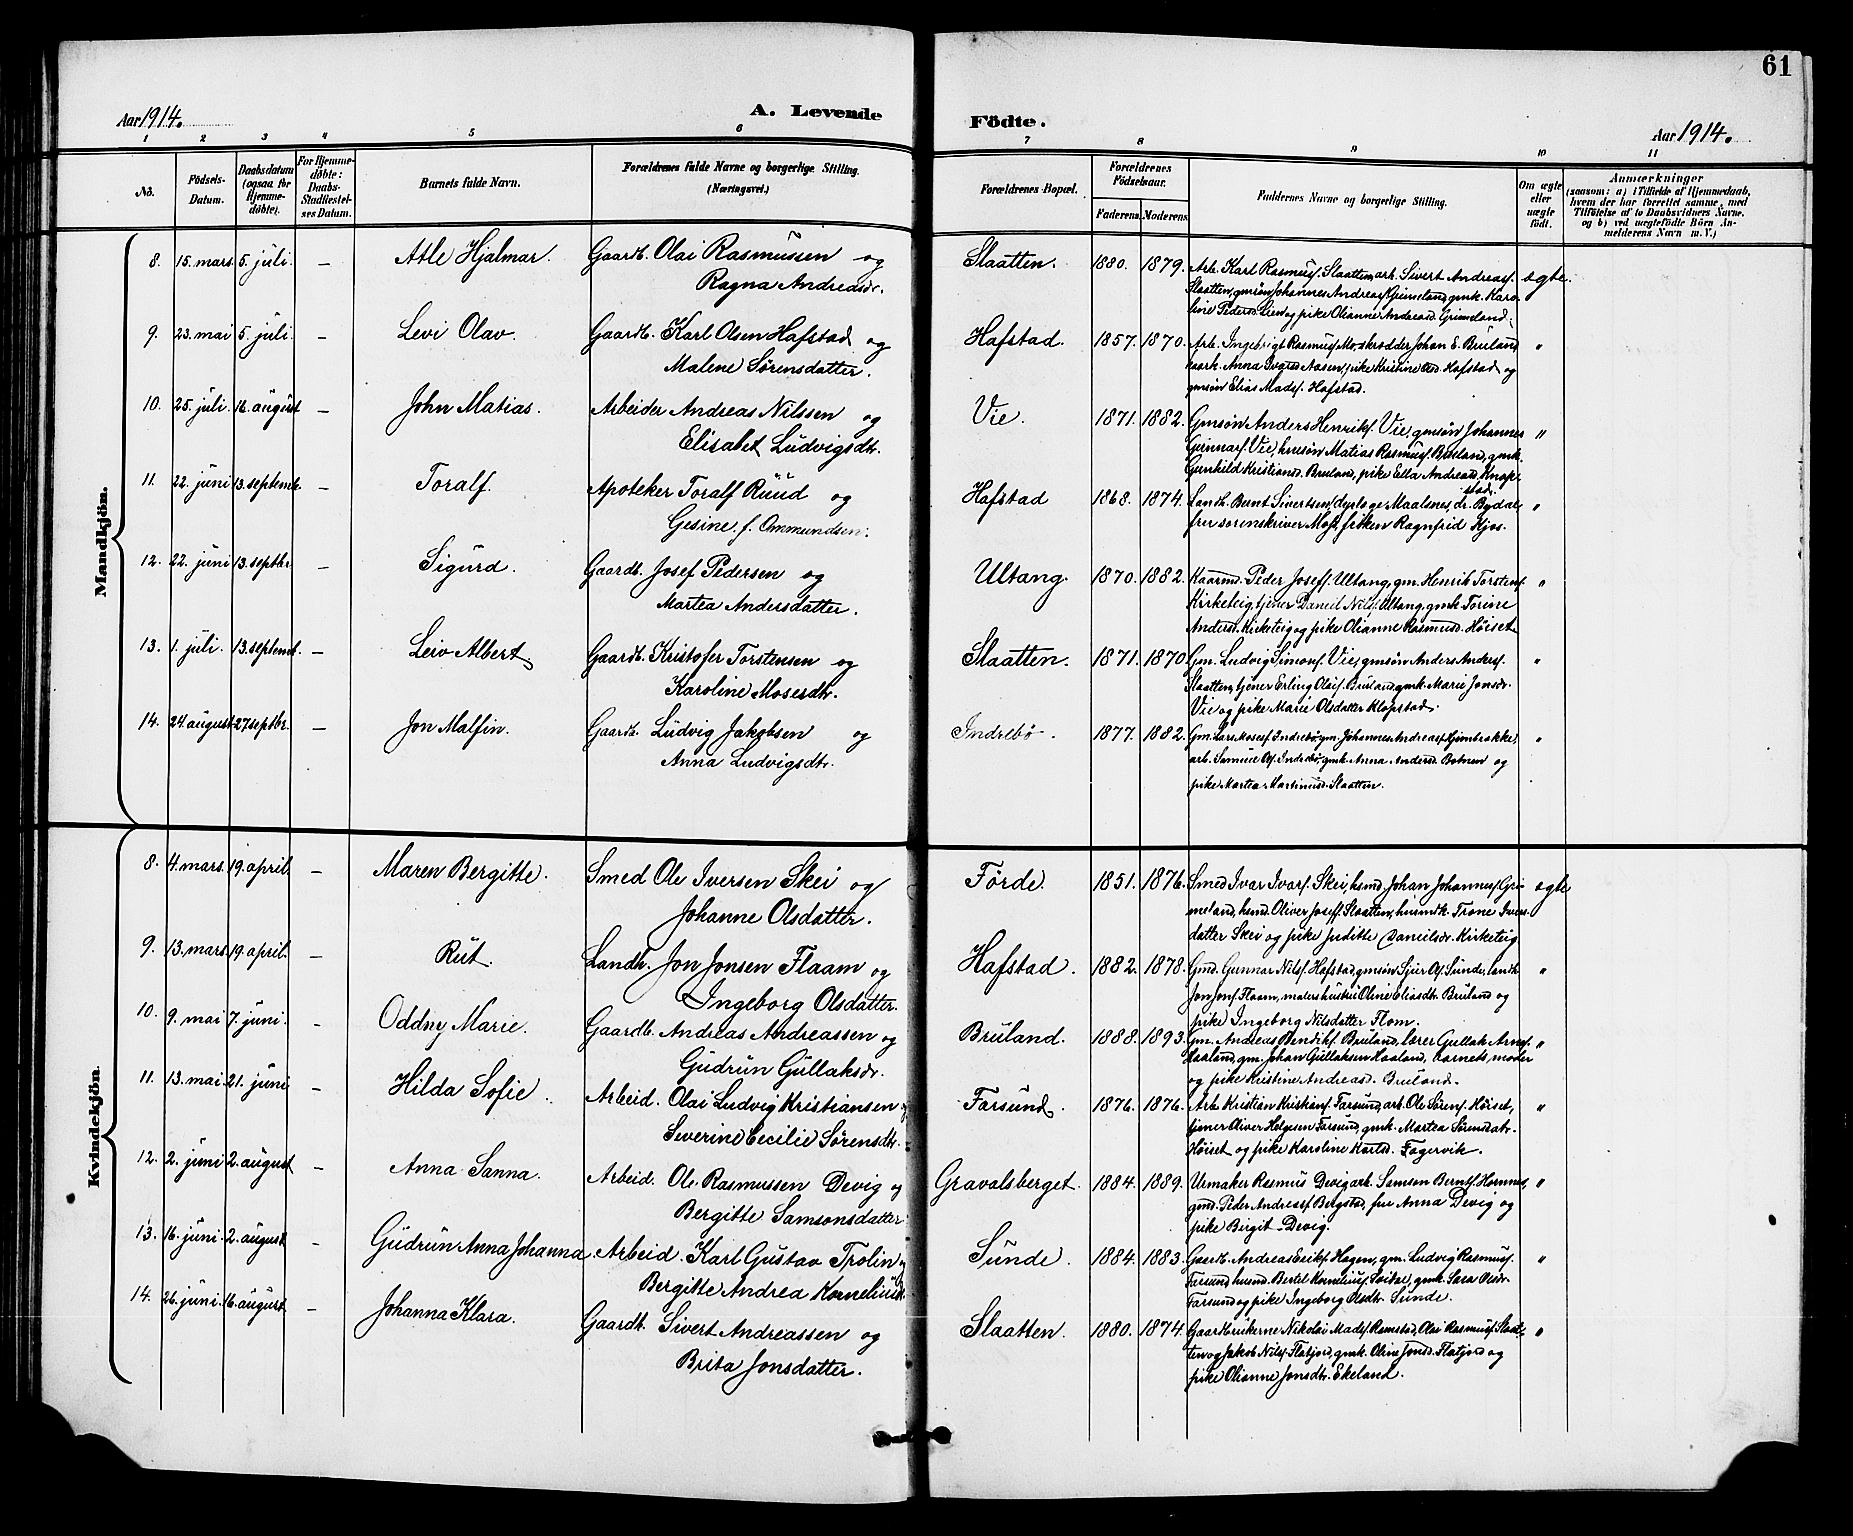 61
Aar 1914.
A. Levende
Födte.
Aar 1914.
1 2 3 4 5 6 7 8 9 10 11
No.
Födsels-
Datum.
Daabsdatum
(ogsaa for
Hjemme-
döbte).
For Hjemme-
döbte:
Daabs-
Stadfæstel-
ses Datum.
Barnets fulde Navn.
Forældrenes fulde Navne og borgerlige Stilling.
(Næringsvei.)
Forældrenes Bopæl.
Forældrenes
Födselsaar.
Faderens. Moderens.
Faddernes Navne og borgerlige Stilling.
Om ægte
eller
uægte
födt.
Anmærkninger
(saasom: a) i Tilfælde af Hjemmedaab,
hvem der har forrettet samme, med
Tilföielse af to Daabsvidners Navne,
og b) ved uægtefödte Börn An-
melderens Navn m. V.)
Mandkjön.
8. 15. mars. 5. juli. – Atle Hjalmar. Gaardb. Olai Rasmussen og
Ragna Andreasdr.
Slaatten. 1880. 1879. Arb. Karl Rasmusf. Slaatten, arb. Sivert Andreasf.
Slaatten, gmsøn Johannes Andreasf. Grimeland, gmk. Karo-
line Pedersd. Lien og pike Olianne Andreasd. Grimeland. ægte.
9. 23. mai 5. juli. – Levi Olav. Gaardb. Karl Olsen Hafstad og
Malene Sørensdatter.
Hafstad. 1857. 1870. Arb. Ingebrigt Rasmusf. Mo, skrædder Johan E. Bruland
Aasen, pike Kristine Olsd. Hafstad og
gmsøn Elias Madsf. Hafstad. "
10. 25. juli. 16. august – John Matias. Arbeider Andreas Nilssen og
Elisabet Ludvigsdtr.
Vie. 1871. 1882. Gmsøn Anders Henrikf. Vie, gmsøn Johannes
Gunnarf. Vie, husøn Matias Rasmusf. Bruland, gmk.
Gunhild Kristiansd. Bruland, pike Ella Andreasd. Knap-
stad. "
11. 22. juni 13. septemb. – Toralf. Apoteker Toralf Ruud og
Gesine, f. Ommundsen.
Hafstad 1868. 1874. Landh. Bernt Sivertsen, Maalenes, dr. Bydal
fru sorenskriver Mo, frøken Ragnfrid Kjos. "
12. 22. juni 13. septbr. – Sigurd. Gaardb. Josef Pedersen og
Martea Andersdatter.
Ultang. 1870. 1882. Kaarmd. Peder Joseff. Ultang, gm. Henrik Torstenf.
Kirketeig, tjener Daneil Nilsf. Ultang, gmk. Torine
Andersd. Kirketeig og pike Olianne Rasmusd. Høiset. "
13. 1. juli. 13. septemb. – Leiv Albert. Gaardb. Kristofer Torstensen og
Karoline Mosesdtr.
Slaatten. 1871. 1870. Gm. Ludvig Simonf. Vie, gmsøn Anders Andersf.
Slaatten, tjener Erling Olaif. Bruland, gmk. Marie Jonsdr.
Vie og pike Marie Olsdatter Klopstad. "
14. 24. august 27 septbr. – Jon Malfin. Gaardb. Ludvig Jakobsen og
Anna Ludvigsdtr.
Indrebø. 1877. 1882. Gm. Lars Mosesf. Indrebø, gm. Johannes Andreasf. Hjembrakke,
arb. Samuel Olf. Indrebø, gmk. Anna Andersd. Botnen og
pike Martea Martinusd. Slaatten. "
Kvindekjön.
8. 4. mars. 19. april. – Maren Bergitte. Smed Ole Iversen Skei og
Johanne Olsdatter.
Förde. 1851. 1876. Smed Ivar Ivarf. Skei, hsmd. Johan Johannesf. Gri-
meland, hsmd. Oliver Joseff. Slaatten, husmdk. Trone Ivers-
datter Skei og pike Juditte Daneilsdr. Kirketeig. ægte
9. 13. mars. 19. april. – Rut. Landh. Jon Jonsen Flaam og
Ingeborg Olsdatter.
Hafstad. 1882. 1878. Gmd. Gunnar Nilsf. Hafstad, gmsøn Sjur Olf. Sunde, landh.
Jon Jonf. Flaam, malers hustru Oline Eliasdtr. Bruland og
pike Ingeborg Nilsdatter Flom. "
10. 9. mai 7. juni. – Oddny Marie. Gaardb. Andreas Andreassen og
Gudrun Gullaksdr.
Bruland. 1888. 1893. Gm. Andreas Bendikf. Bruland, lærer Gullak Arnef.
Haaland, gm. Johan Gullaksen Haaland, barnets moder
og pike Kristine Andreasd. Bruland. "
11. 13. mai 21. juni – Hilda Sofie. Arbeid. Olai Ludvig Kristiansen og
Severine Cecilie Sørensdtr.
Farsund. 1876. 1876. Arb. Kristian Kristianf. Farsund, arb. Ole Sørenf. Høiset,
tjener Oliver Helgesen Farsund, gmk. Martea Sørensdatr.
Høiset og pike Karoline Karlsd. Fagervik. "
12. 2. juni 2. august – Anna Sanna. Arbeid. Ole Rasmussen Devig og
Bergitte Samsonsdatter
Gravalsberget. 1884. 1889. Urmaker Rasmus Devig, arb. Samson Berntf. Hornnes,
gmd. Peder Andreasf. Bergstad, fru Anna Devig og
pike Birgit Devig. "
13. 16. juni. 2. august – Gudrun Anna Johanna. Arbeid. Karl Gustav Trolin og
Bergitte Andrea Korneliusdr.
Sunde. 1884. 1883. Gaardb. Andreas Erikf. Hagen, gm. Ludvig Rasmusf.
Farsund husmd. Bertel Korneliusf. Solbac, gmk. Sara Olsdr.
Farsund og pike Ingeborg Olsdtr. Sunde. "
14. 26. juni. 16. august – Johanna Klara. Gaardb. Sivert Andreassen og
Brita Jonsdatter.
Slaatten. 1880. 1874. Gaardbrukerne Nikolai Madsf. Ramstad, Olai Rasmusf. Slaat-
ten og Jakob Nilsf. Flatjord, gmk. Oline Jonsd. Flatjord og
pike Olianne Jonsdtr. Ekeland. "